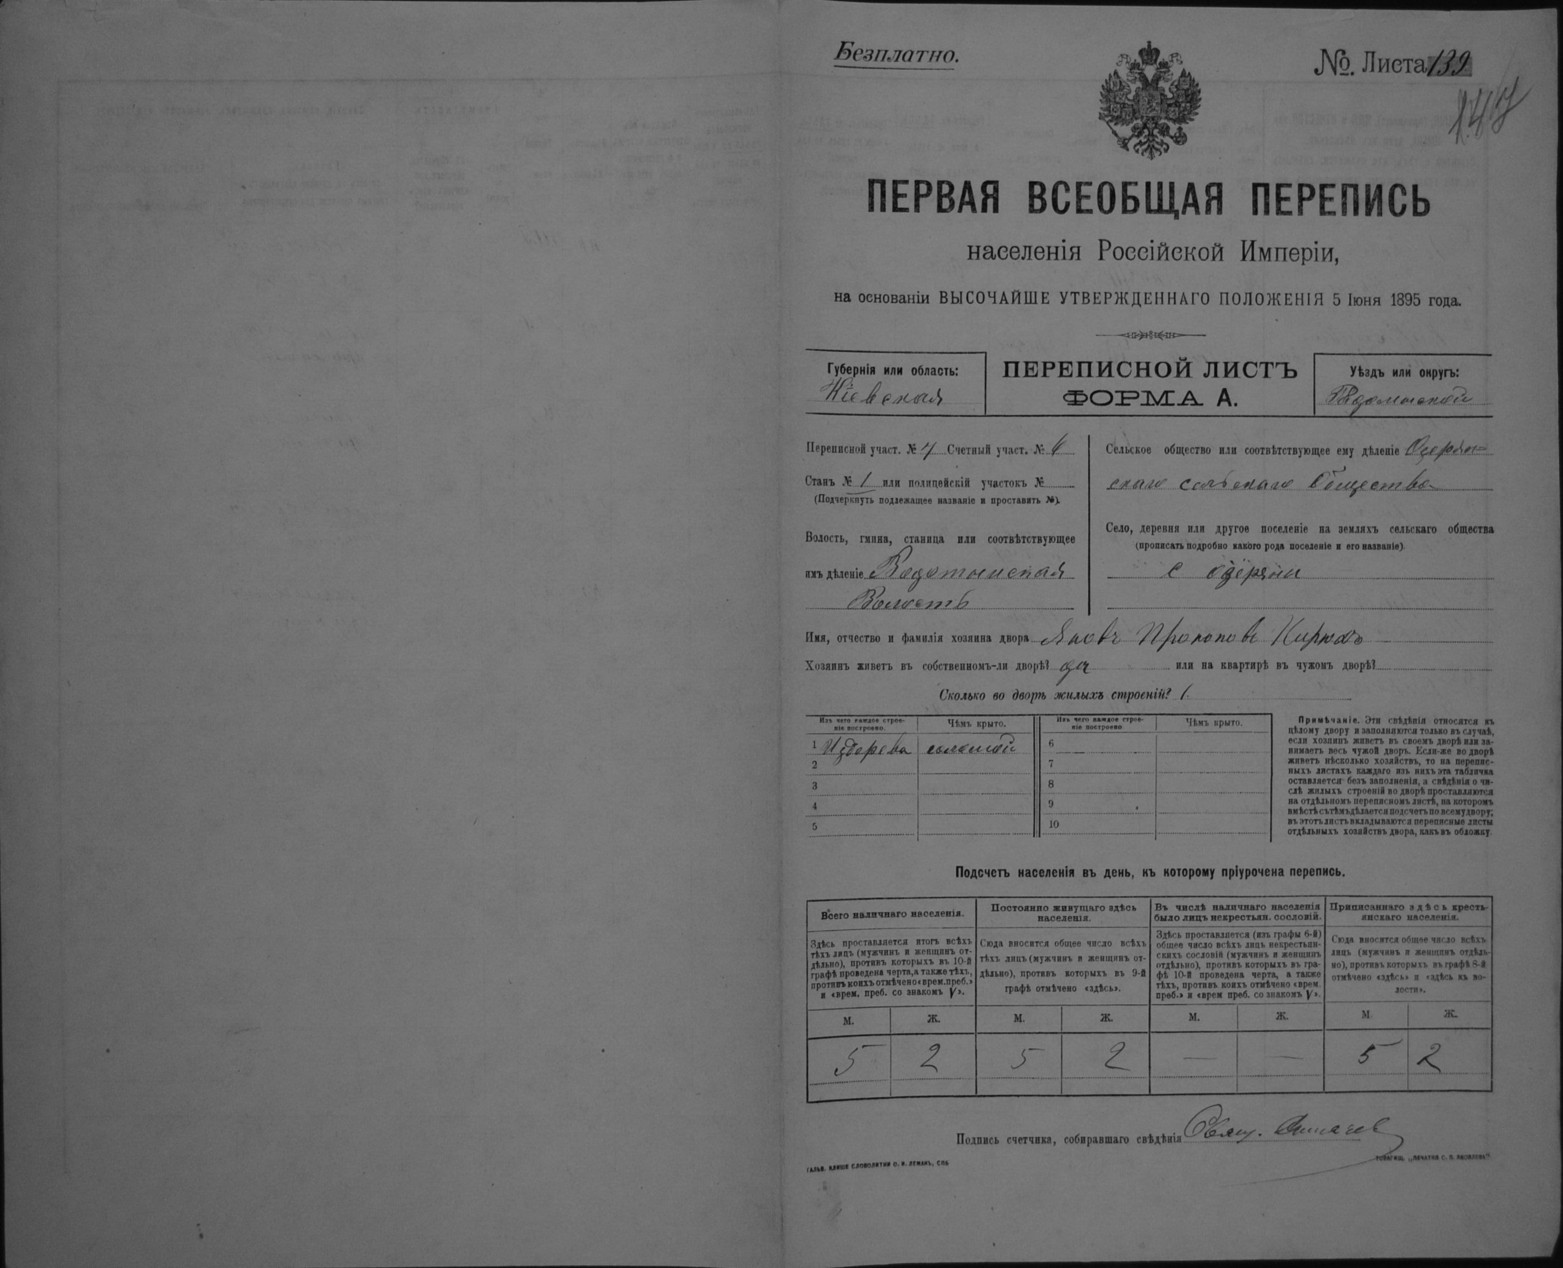 Безплатно.
№. Листа 139
147
ПЕРВАЯ ВСЕОБЩАЯ ПЕРЕПИСЬ
населенія Россійской Имперіи,
на основаніи ВЫСОЧАЙШЕ УТВЕРЖДЕННАГО ПОЛОЖЕНІЯ 5 Іюня 1895 года.
Губернія или область:
Кіевская
ПЕРЕПИСНОЙ ЛИСТЪ
ФОРМА А.
Уѣздъ или округъ:
Радомысльскій
Переписной участ. № 4 Счетный участ. №
Станъ № 1 или полицейскій участокъ №
(Подчеркнуть подлежащее названіе и проставить №).
Волость, гмина, станица или соотвѣтствующее
имъ дѣленіе
Волость
Сельское общество или соотвѣтствующее ему дѣленіе Озерян-
скаго сельскаго Общества
Село, деревня или другое поселеніе на земляхъ сельскаго общества
(прописать подробно какого рода поселеніе и его названіе)
с Озеряни
Имя, отчество и фамилія хозяина двора Яковъ Прокоповъ
Хозяинъ живетъ въ собственномъ-ли дворѣ? да или на квартирѣ въ чужомъ дворѣ?
Сколько во дворѣ жилыхъ строеній? 1
Изъ чего каждое строе-
ніе построено.
Чѣмъ крыто.
Изъ чего каждое строе-
ніе построено
Чѣмъ крыто.
1 Издерева соломой
2
3
4
5
6
7
8
9
10
Примѣчаніе. Эти свѣдѣнія относятся къ
цѣлому двору и заполняются только въ случаѣ,
если хозяинъ живетъ въ своемъ дворѣ или за-
нимаетъ весь чужой дворъ. Если-же во дворѣ
живетъ нѣсколько хозяйствъ, то на перепис-
ныхъ листахъ каждаго изъ нихъ эта табличка
оставляется безъ заполненія, а свѣдѣнія о чи-
слѣ жилыхъ строеній во дворѣ проставляются
на отдѣльномъ переписномъ листѣ, на которомъ
вмѣстѣ съ тѣмъ дѣлается подсчетъ по всему двору;
въ этотъ листъ вкладываются переписные листы
отдѣльныхъ хозяйствъ двора, какъ въ обложку.
Подсчетъ населенія въ день, къ которому пріурочена перепись.
Всего наличнаго населенія.
Здѣсь проставляется итогъ всѣхъ
тѣхъ лицъ (мужчинъ и женщинъ от-
дѣльно), противъ которыхъ въ 10-й
графѣ проведена черта, а также тѣхъ,
противъ коихъ отмѣчено «врем. преб.»
и «врем. преб. со знакомъ V».
Постоянно живущаго здѣсь
населенія.
Сюда вносится общее число всѣхъ
тѣхъ лицъ (мужчинъ и женщинъ от-
дѣльно), противъ которыхъ въ 9-й
графѣ отмѣчено «здѣсь».
Въ числѣ наличнаго населенія
было лицъ некрестьян. сословій.
Здѣсь проставляется (изъ графы 6-й)
общее число всѣхъ лицъ некрестьян-
скихъ сословій (мужчинъ и женщинъ
отдѣльно), противъ которыхъ въ гра-
фѣ 10-й проведена черта, а также
тѣхъ, противъ коихъ отмѣчено «врем.
преб.» и «врем преб. со знакомъ V».
Приписаннаго здѣсь кресть-
янскаго населенія.
Сюда вносится общее число всѣхъ
лицъ (мужчинъ и женщинъ отдѣль-
но), противъ которыхъ въ графѣ 8-й
отмѣчено «здѣсь» и «здѣсь къ во-
лости».
М. Ж. М. Ж. М. Ж. М. Ж.
5 2 5 2 — — 5 2
Подпись счетчика, собиравшаго свѣдѣнія
ГАЛЬВ. КЛИШЕ СЛОВОЛИТНИ О. И. ЛЕМАНЪ, СПБ